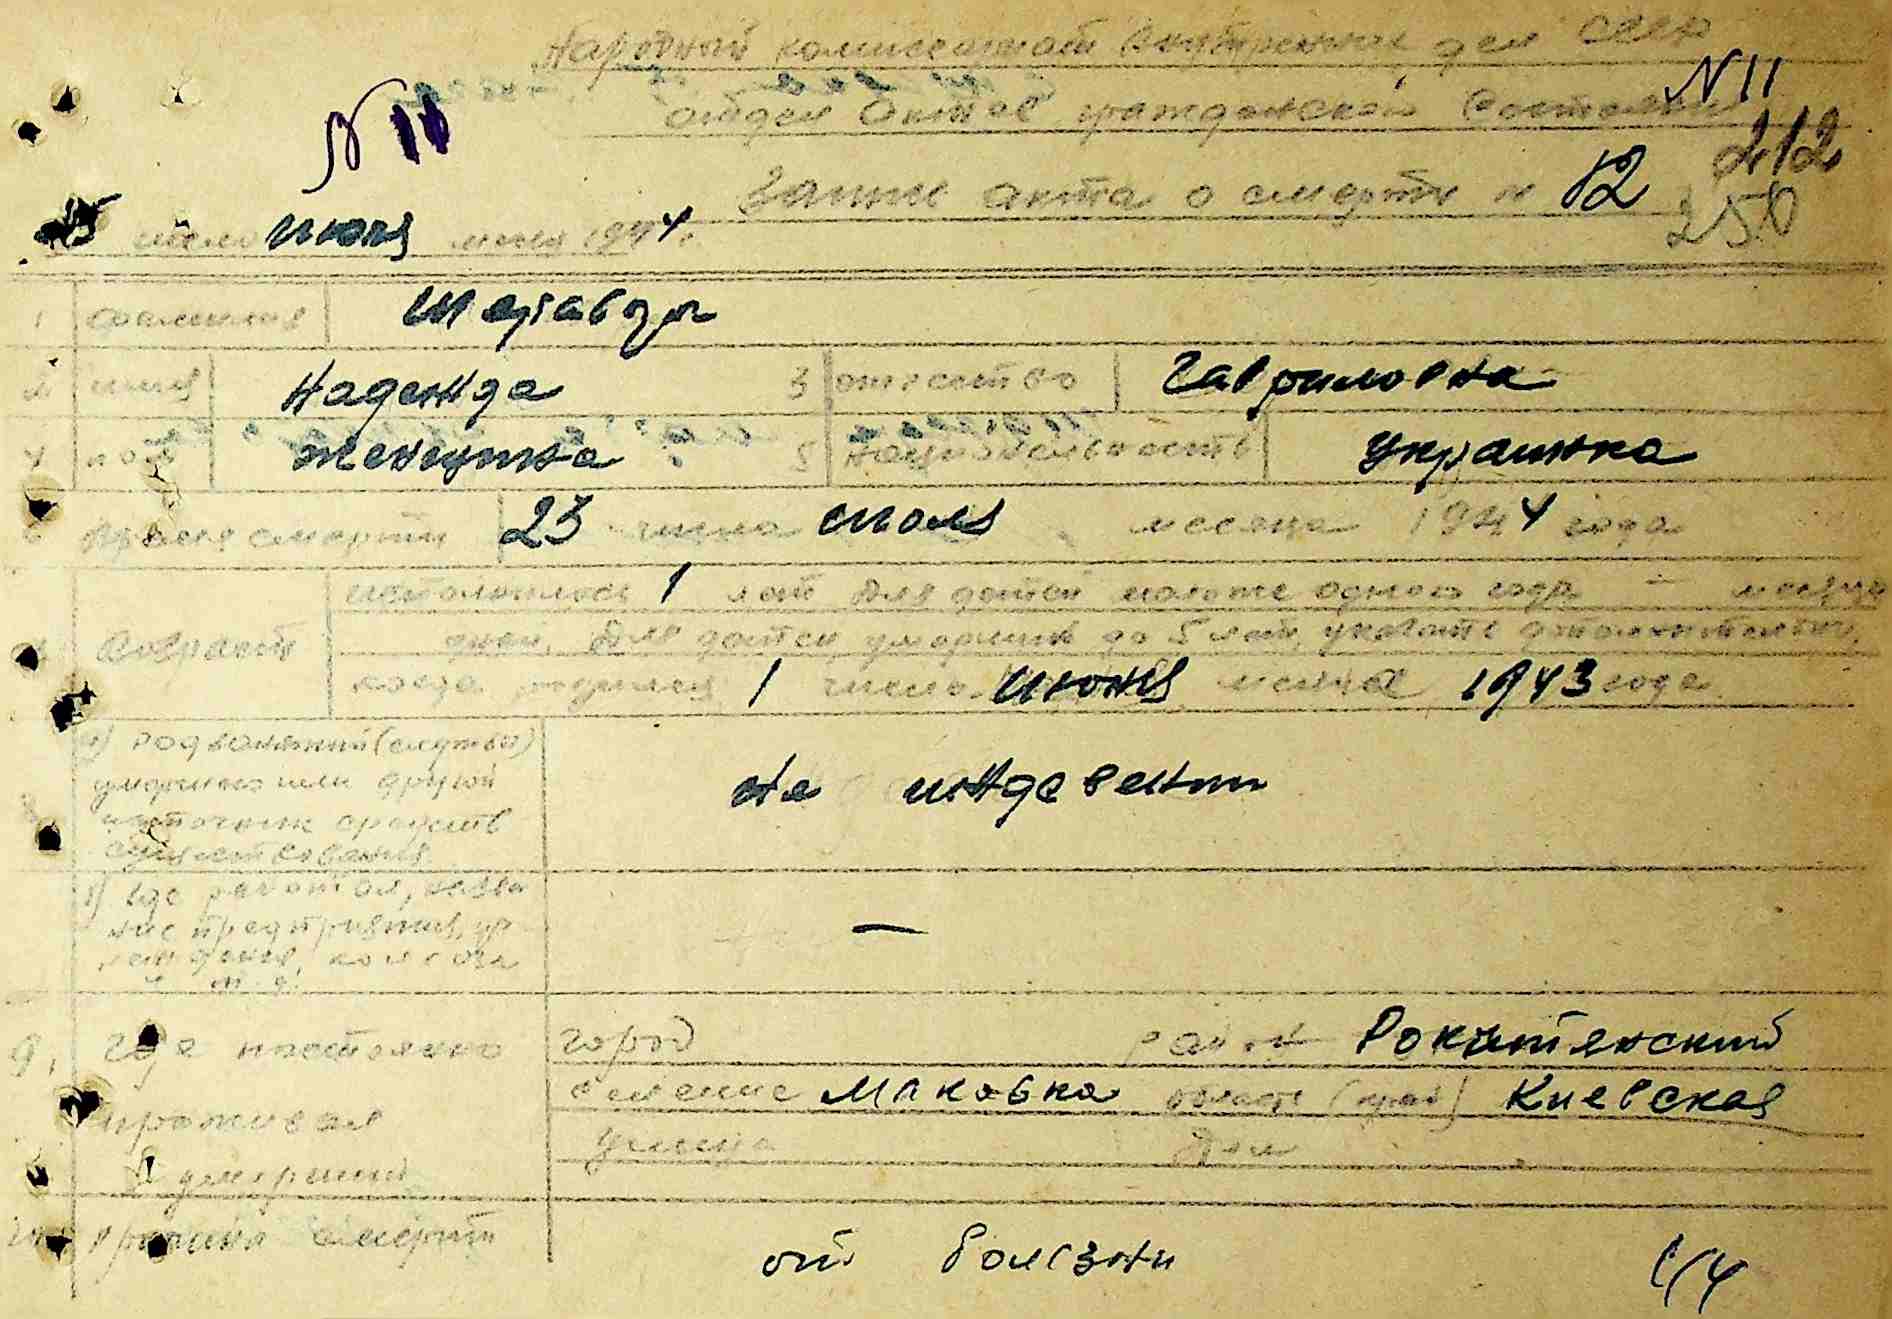 Народный комиссариат внутренних дел СССР
N 11
отдел актов гражданского состояния
N 11
212
Запись акта о смерти N 12
250
число июля м-ца 1944 г.
1 фамилия
2 имя Надежда 3 отчество Гавриловна
4 пол женщина 5 национальность украинка
6 Время смерти 23 числа июля месяца 1944 года
исполнилось 1 лет для детей моложе одного года - месяцев
возраст дней. Для детей, умерших до 5 лет, указать дополнительно,
когда родился 1 число июня месяца 1943 года
а) род занятий (службы)
умершего или другой
источник средств
существования
на иждевении
б) где работал, назва
ние предприятия, уч
реждения, колхоза
и т.д.
—
9. Где постоянно город район Рокитянский
селение Маковка область (край) Киевская
проживал
улица дом
умерший
10 Причина смерти от болезни